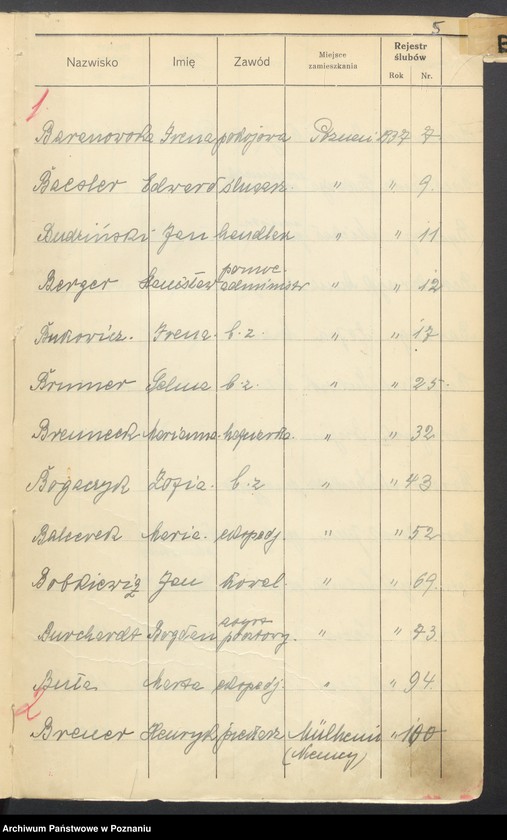 5
Nazwisko Imię Zawód Miejsce zamieszkania Rejestr ślubów Rok Nr.
1
Baranowska Irena pokojowa Poznań 1937 7
Baesler Edward ślusarz. " " 9.
Budziński Jan handler " " 11
Berger Stanisław pomoc. administr " " 12
Bukowicz. Irena. b. z. " " 17
Brunner Selma b. z. " " 25.
Brenneck Marianna. " " 32
Bogaczyk Zofia. b. z " " 43
Balcerek Maria. ekspedj. " " 52
Bobkiewicz Jan kowal. " " 69.
Burchardt Bogdan asyst pocztowy. " " 73
Buła Marta ekspedj. " " 94.
2
Brener Henryk piekarz Mülheim " 100
(Niemcy)
Archiwum Państwowe w Poznaniu